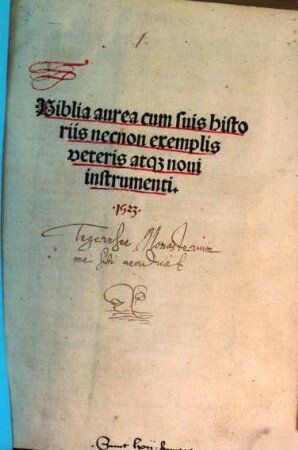 1.
Biblia aurea cum suis histo
riis necnon exemplis
veteris atqꝫ noui
instrumenti.
·1523·
Tegernsee Monasterium
me sibi
Sunt lxij